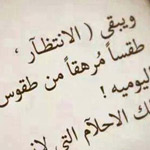 ويبقى ( الانتظآر ،
طقساً مُرهقاً من طقوس
اليوميه !
تلك الاحلآم التي لا